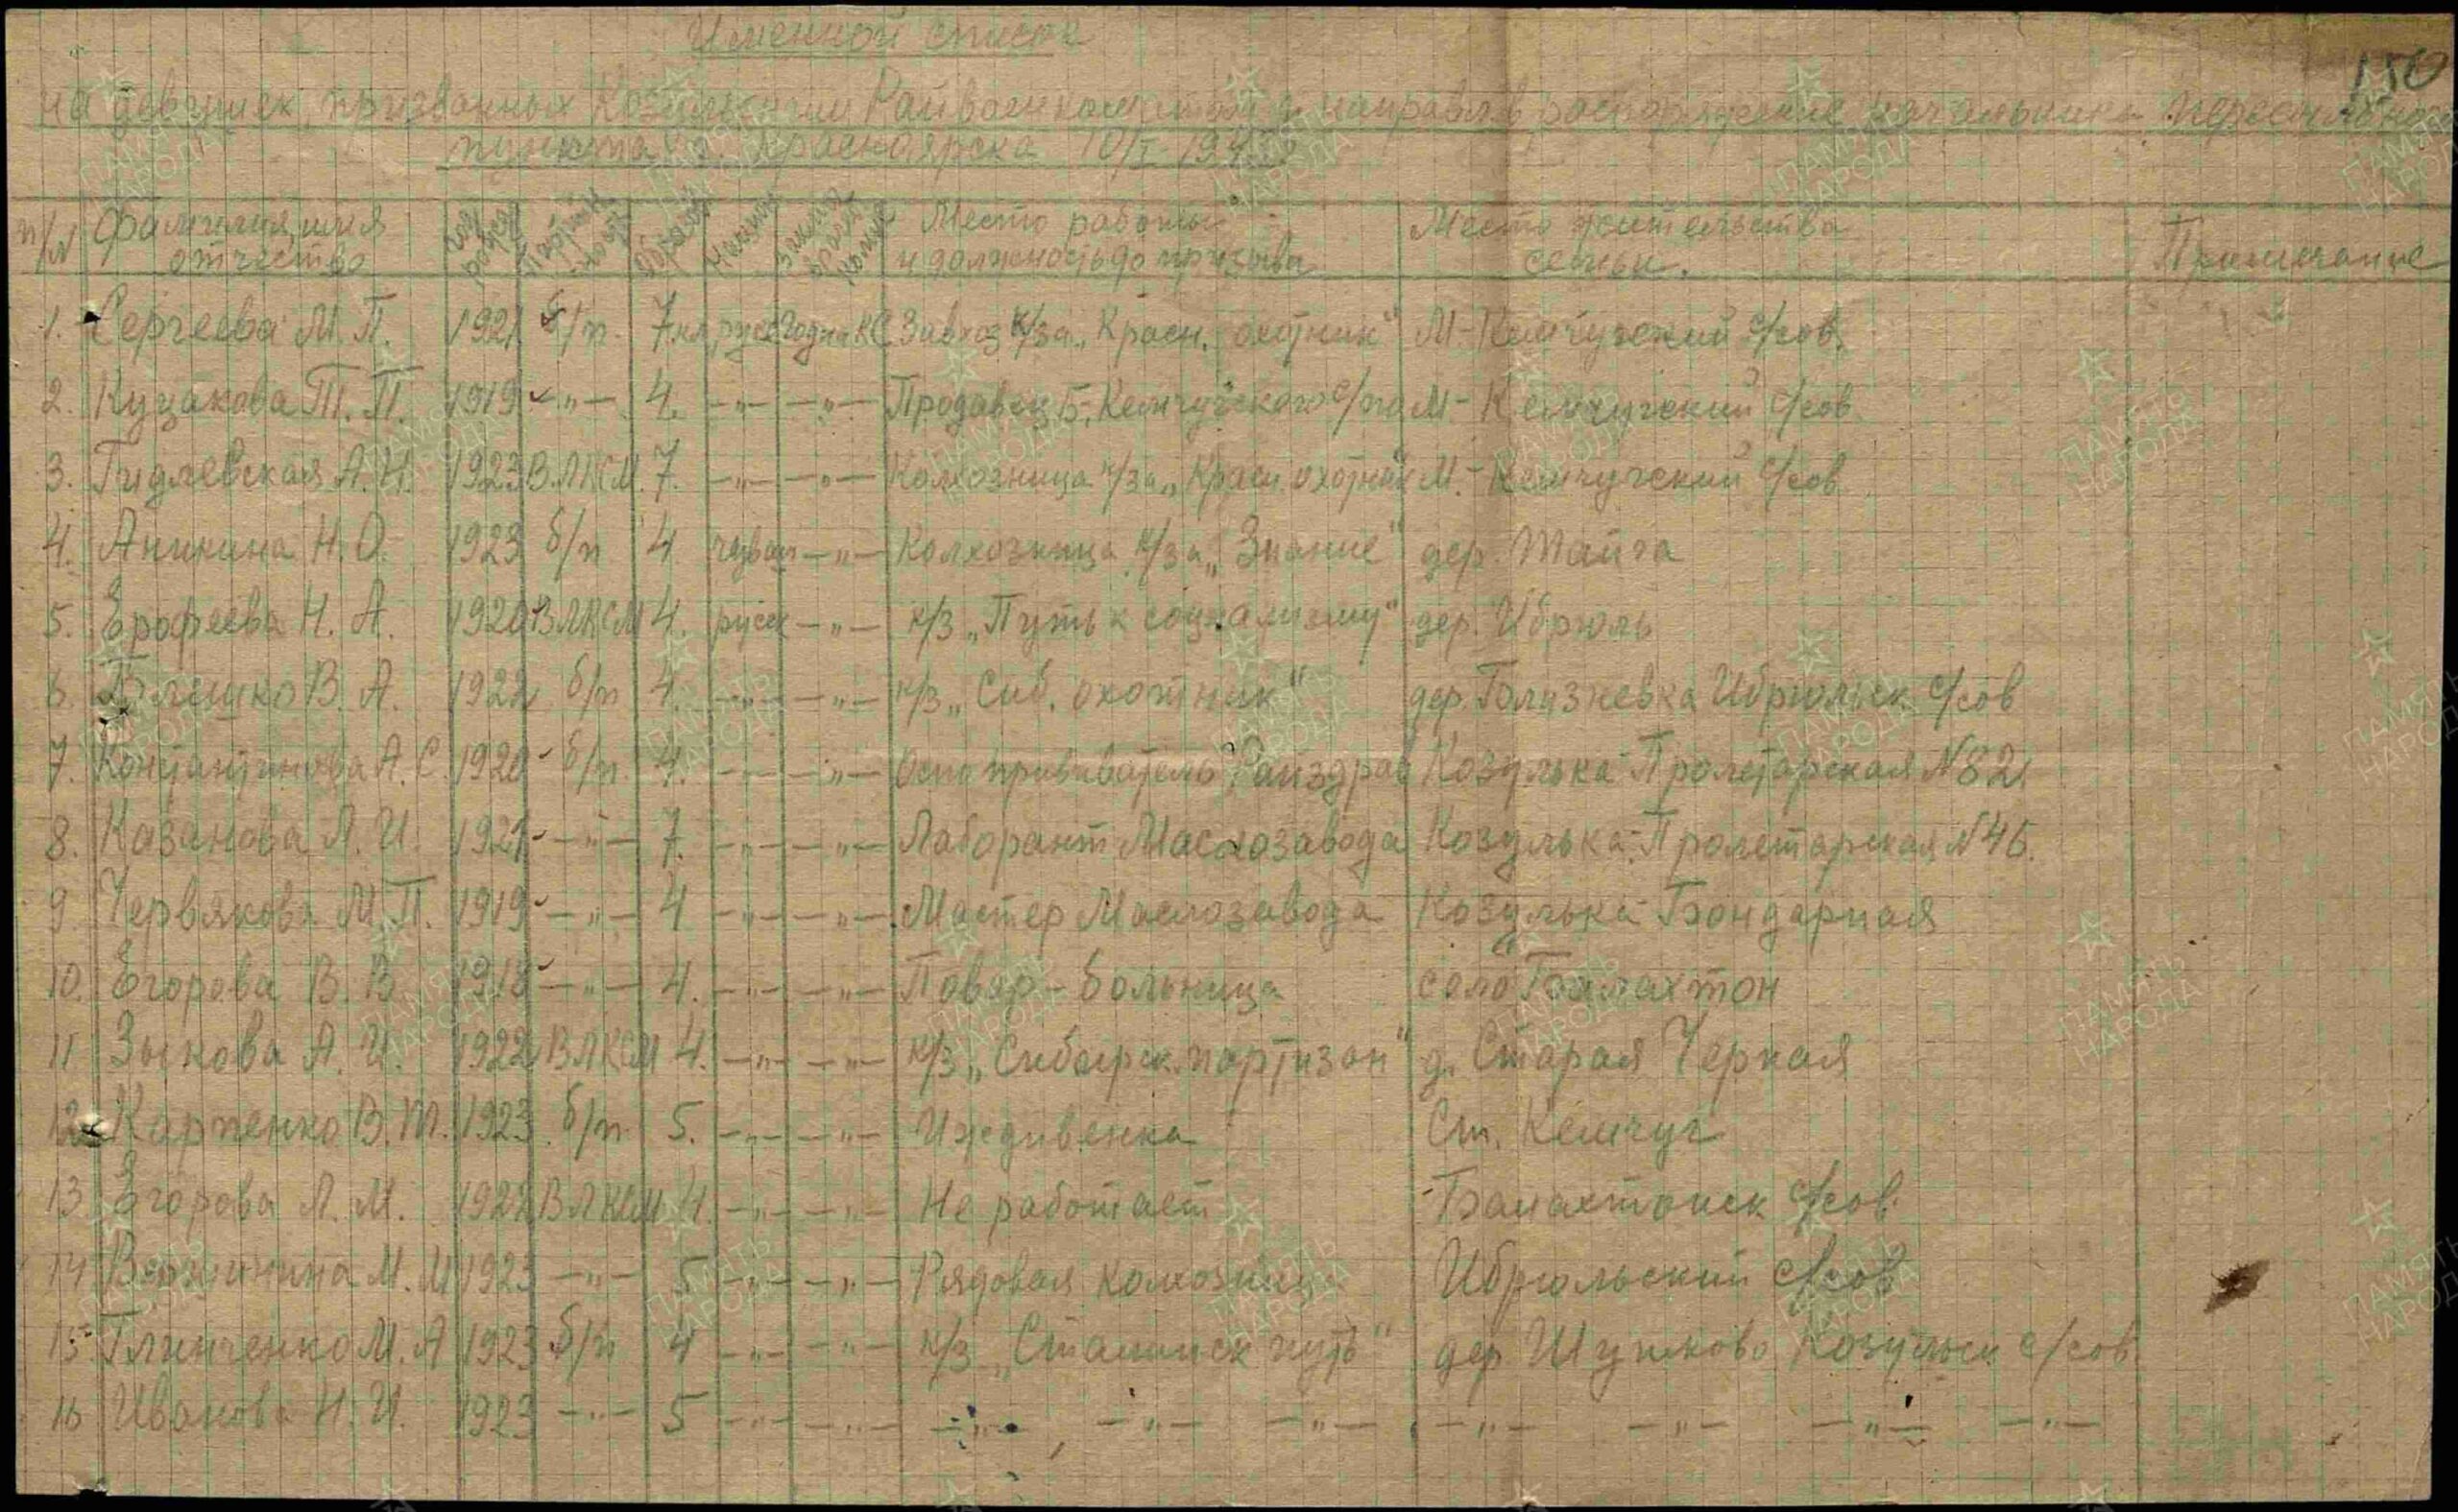 Именной список
на девушек, призванных Козульским Райвоенкоматом и направл. в распоряжение начальника пересыльного
пункта г. Красноярска 10/I 194
150
п/N Фамилия, имя отчество год рожд. Партийность Образов. Национ. Место работы и должность до призыва Место жительства семьи. Примечание
1. Сергеева М. П. 1921 б/п. 7 кл русс Годна КС Завхоз к/за „Красн. охотник" М-Кемчугский с/сов.
2. Куцакова Т. П. 1919 -"- 4. -"- -"- Продавец Б. Кемчугского с/по М-Кемчугский с/сов
3. Гидлевская А. Н. 1923 ВЛКСМ. 7. -"- -"- Колхозница к/за „Красн. охотник" М.-Кемчугский с/сов
4. Аникина Н. О. 1923 б/п 4 чуваш -"- Колхозница к/за „Знание" дер. Тайга
5. Ерофеева Н. А. 1920 ВЛКСМ 4. русск -"- к/з „Путь к социализму" дер. Ибрюль
6. В. А. 1922 б/п 4. -"- -"- к/з „Сиб. охотник" дер. Глизневка Ибрюльск с/сов
7. Константинова А. С. 1920 б/п. 4. -"- -"- Оспопрививатель Райздрав Козулька Пролетарская N 82
8. Казанова Л. И. 1921 -"- 7. -"- -"- Лаборант Маслозавода Козулька Пролетарская N 45.
9 Червякова М. П. 1919 -"- 4 -"- -"- Мастер Маслозавода Козулька Бондарная
10. Егорова В. В. 1918 -"- 4. -"- -"- Повар-больница село Балахтон
11 Зыкова А. И. 1922 ВЛКСМ 4. -"- -"- к/з „Сибирск. партизан" д. Старая Черная
12 Карпенко В. Т. 1923 б/п 5. -"- -"- Иждивенка Ст. Кемчуг
13 Егорова Л. М. 1922 ВЛКСМ 4. -"- -"- Не работает Балахтонск с/сов.
14 М. М 1923 -"- 5 -"- -"- Рядовая колхозница Ибрюльский с/сов
15 Глинченко М. А 1923 б/п 4 -"- -"- к/з „Сталинск путь" дер Шушково Козульск с/сов
16 Иванова Н. И. 1923 -"- 5 -"- -"- -"- -"- -"- -"- -"- -"- -"-
ПАМЯТЬ НАРОДА